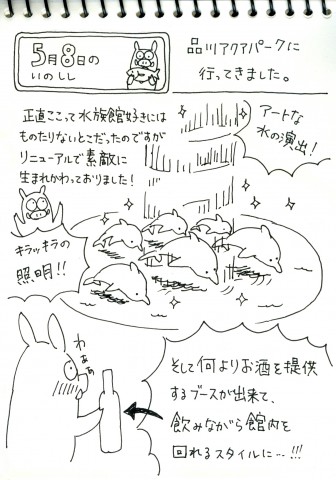 5月8日の
いのしし
品川アクアパークに
行ってきました。
正直ここって水族館好きには
ものたりないとこだったのですが
リニューアルで素敵に
生まれかわっておりました!
アートな
水の演出!
キラッキラの
照明!!
わぁぁ
そして何よりお酒を提供
するブースが出来て、
飲みながら館内を
回れるスタイルに…!!!